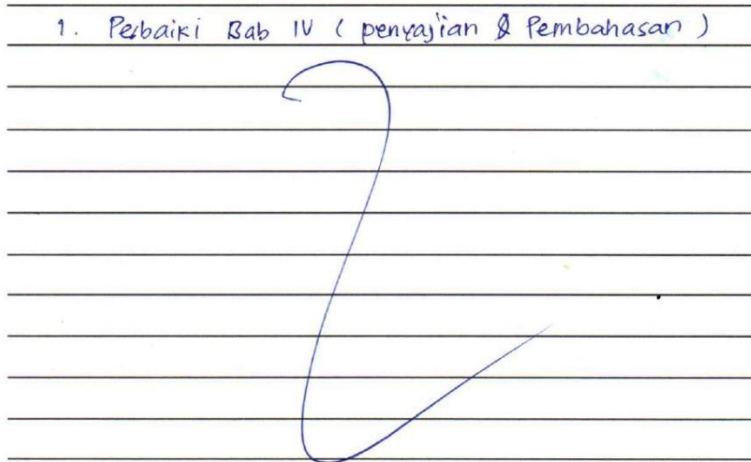 1. Perbaiki Bab IV ( penyajian & Pembahasan )